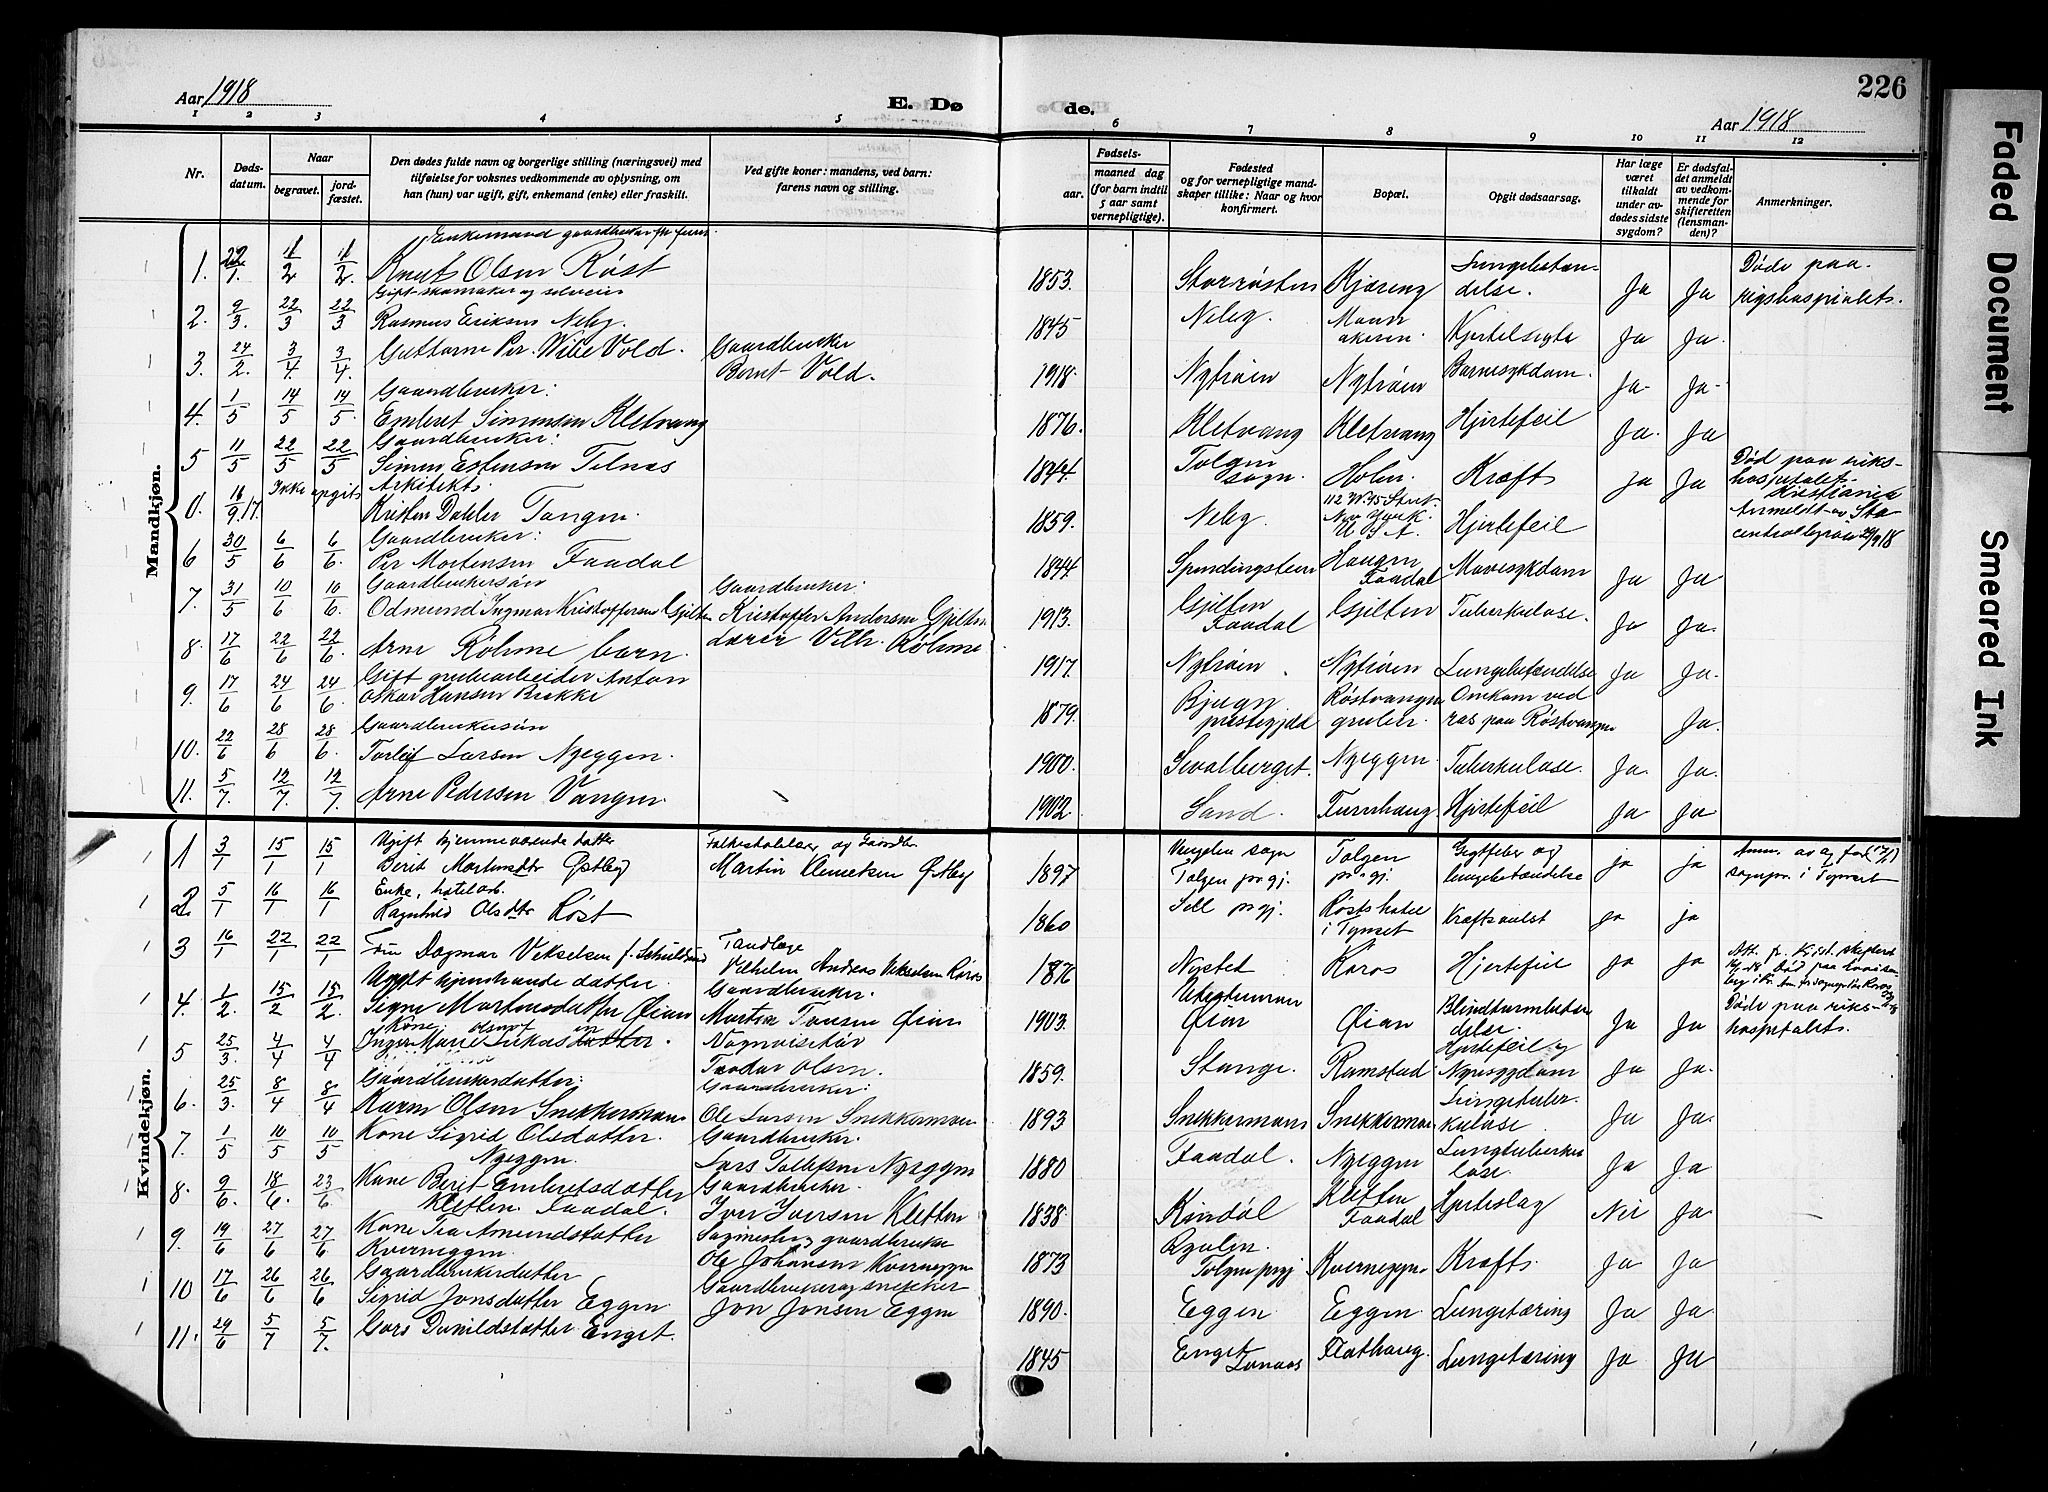 226
Aar 1918
E. Dø
de.
Aar 1918
1 2 3 4 5 6 7 8 9 10 11 12
Nr.
Døds-
datum.
Naar
begravet.
jord-
fæstet.
Den dødes fulde navn og borgerlige stilling (næringsvei) med
tilføielse for voksnes vedkommende av oplysning, om
han (hun) var ugift, gift, enkemand (enke) eller fraskilt.
Ved gifte koner: mandens, ved barn:
farens navn og stilling.
Fødsels-
aar.
maaned dag
(for barn indtil
5 aar samt
vernepligtige).
Fødested
og for vernepligtige mand-
skaper tillike: Naar og hvor
konfirmert.
Bopæl.
Opgit dødsaarsag.
Har læge
været
tilkaldt
under av-
dødes sidste
sygdom?
Er dødsfal-
det anmeldt
av vedkom-
mende for
skifteretten
(lensman-
den)?
Anmerkninger.
Mandkjøn.
Enkemand gaardbruker
1. 22/1 11/2 11/2 Knut Olsen Røst 1853. Storrøsten Kjæreng Lungebetæn-
delse. Ja Ja Døde paa
rigshospitalet.
Gift skomaker og selveier
2. 9/3. 22/3 22/3 Rasmus Eriksen Neby. 1845 Neby. Kjertelsygta Ja Ja.
3. 24/2. 3/4. 3/4. Guttorm Per. Wilie Vold. Gaardbruker
Bernt Vold. 1918. Nytrøien Nytrøien Barnesykdom. Ja. Ja.
Gaardbruker:
4. 1/5 14/5 14/5. Embret Simensen Kletvang 1876. Kletvang Kletvang Hjertefeil Ja. Ja
Gaardbruker:
5 11/5 22/5 22/5 Simen Estensen Telnes 1844. Tolgen
sogn. Holen. Kræft Ja Ja Død paa riks-
hospitalet
Kristiania
Arkitekt.
0. 16/9 17. Ikke opgit Kristen Dahler Tangen. 1859. Neby. 112 W. 45 Street.
New York.
U. S. A. Hjertefeil Anmeldt av Sta
centralbyraa 24/9 18
Gaardbruker:
6 30/5 6/6 6/6. Per Mortensen Faadal 1844. Spendingsteien Haugen
Faadal Mavesykdom Ja Ja.
Gaardbrukersøn
7. 31/5 10/6 10/6. Odmund Ingmar Kristoffersen Gjelten Gaardbruker:
Kristoffer Andersen Gjelten 1913. Gjelten
Faadal Gjelten Tuberkulose. Ja Ja.
8. 17/6 22/6 22/6. Arne Røhme barn. Lærer Vilh. Røhme 1917. Nytrøien. Nytrøien Lungebetændelse Ja Ja.
9. 17/6 24/6 24/6. Gift grubearbeider Anton
Oskar Hansen Brække 1879. Bjugn
prestegjeld Røstvangen
gruber. Omkom ved
ras paa Røstvangen Ja.
Gaardbrukersøn
10. 22/6 28/6 28/6. Torleif Larsen Nyeggen. 1900. Sevalberget. Nyeggen. Tuberkulose. Ja. Ja.
11. 5/7. 12/7. 12/7. Arne Pedersen Vangen. 1902. Sand. Furuhaug. Hjertefeil Ja Ja
Kvindekjøn.
1 3/1 15/1 15/1 Ugift hjemmeværende datter
Berit Martinsdtr Østby Folkeskolelærer og Gaardbr.
Martin Clemetsen Østby 1897 Vingelen sogn
Tolgen prgj. Tolgen
prgj. Gigtfeber og
lungebetændelse ja ja Anm. av sogn
sognepr. i Tynset
2 5/1 16/1 16/1 Enke, hotelarb.
Ragnhild Olsdtr Røst 1860 Sell prgj. Røsts hotel
i Tynset Kræftsvulst ja ja
3 16/1 22/1 22/1 Fru Dagmar Vekselsen f. Schulstad Tandlæge
Vilhelm Andreas Vekselsen Røros 1876 Nysted Røros Hjertefeil ja ja
4. 1/2. 15/2 15/2. Ugift hjemmeværende datter.
Signe Martinsdatter Øian Gaardbruker.
Martin Tønsen Øian 1903. Utestumoen
Øian Øian Blindtarmbeten-
delse. Ja Ja Døde paa riks-
hospitalet.
5 25/3. 4/4 4/4 Kone
Inger Marie Lukasdatter. Vognvisitør
Teodor Olsen. 1859. Stange. Ramstad Hjertefeil og
Nyresygdom Ja Ja
6. 25/3. 8/4 8/4 Gaardbrukerdatter:
Karen Olsen Snekkermoen Gaardbruker:
Ole Larsen Snekkermoen 1893 Snekkermoen Snekkermoen Lungetuber-
kulose. Ja Ja.
7. 1/5 10/5 10/5 Kone Sigrid Olsdatter.
Nyeggen. Gaardbruker.
Lars Tollefsen Nyeggen 1880 Faadal. Nyeggen Lungtuberku
lose. Ja Ja
8. 9/6. 18/6. 23/6 Kone Berit Embretsdatter
Kletten Faadal. Gaardbruker.
Iver Iversen Kletten 1838. Kindøl Kletten
Faadal Hjerteslag Nei Ja
9. 19/6 27/6 27/6 Kone Tea Amundsdatter
Kverneggen. Sagmester og gaardbruker
Ole Johansen Kverneggen 1873 Ryolen.
Tolgen prgj Kverneggen. Kræft. Ja Ja
10 17/6 26/6 26/6 Gaardbrukerdatter
Sigrid Jonsdatter Eggen Gaardbruker og snekker
Jon Jonsen Eggen 1890. Eggen Eggen. Lungetæring Ja Ja
11. 29/6 5/7 5/7. Gors Denildsdatter Enget. 1845 Enget
Lonaas Flathaug. Lungetæring Ja Ja
Faded Document
Smeared Ink